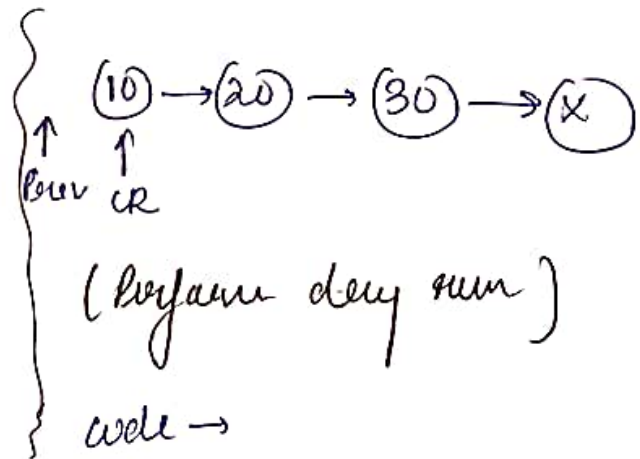 10 → 20 → 30 → X
↑ ↑
Prev CR
(Perform dry run)
code →